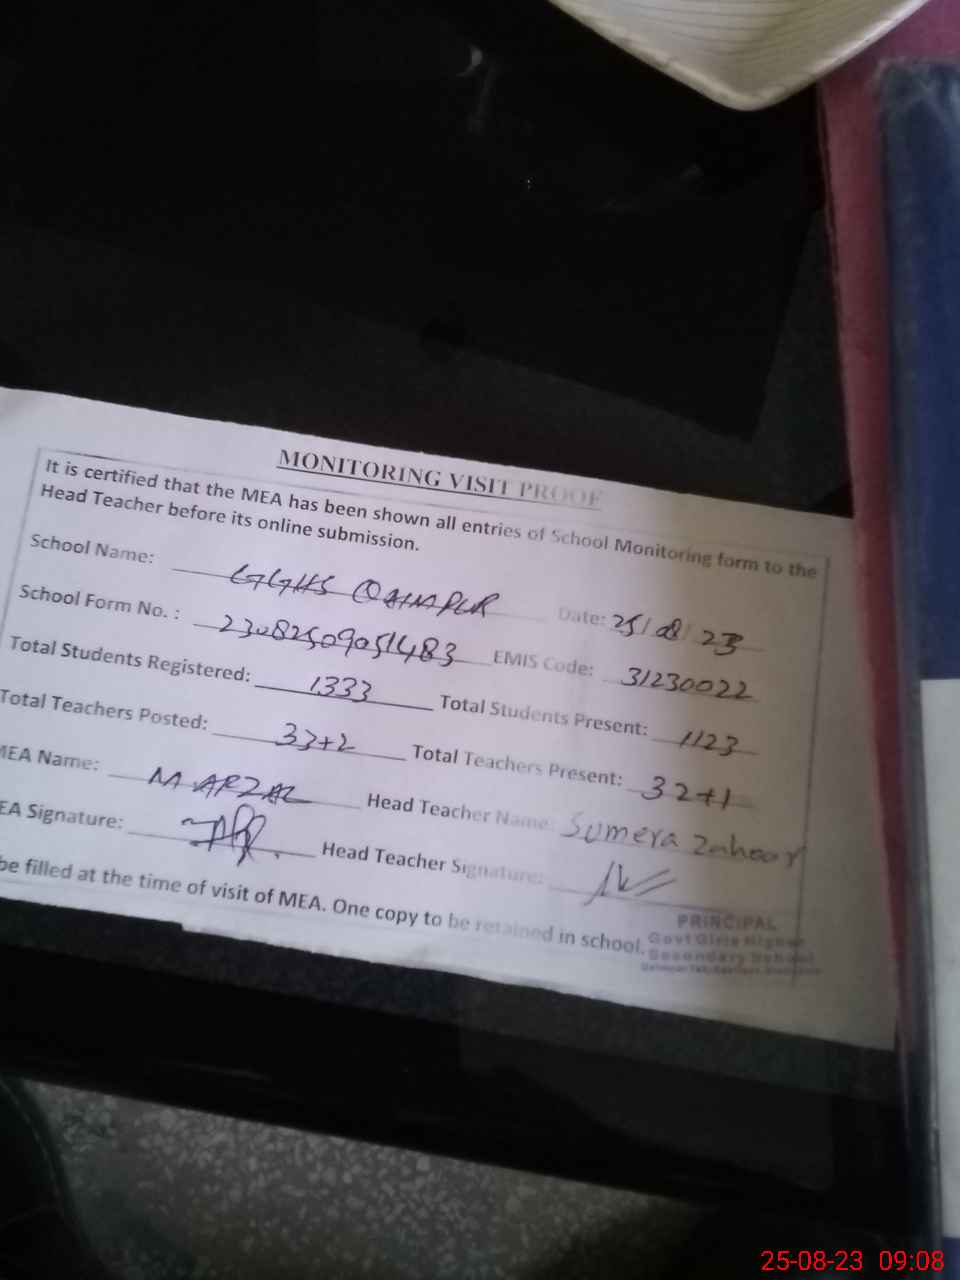 MONITORING VISIT PROOF
It is certified that the MEA has been shown all entries of School Monitoring form to the
Head Teacher before its online submission.
School Name: GGHS Date: 25/08/23
School Form No. : 23082509051483 EMIS Code: 31230022
Total Students Registered: 1333 Total Students Present: 1123
Total Teachers Posted: 33+2 Total Teachers Present: 32+1
MEA Name: M ARZAL Head Teacher Name: Sumera Zahoor
EA Signature: Head Teacher Signature:
be filled at the time of visit of MEA. One copy to be retained in school.
PRINCIPAL
Govt Girls Higher
Secondary School
25-08-23 09:08